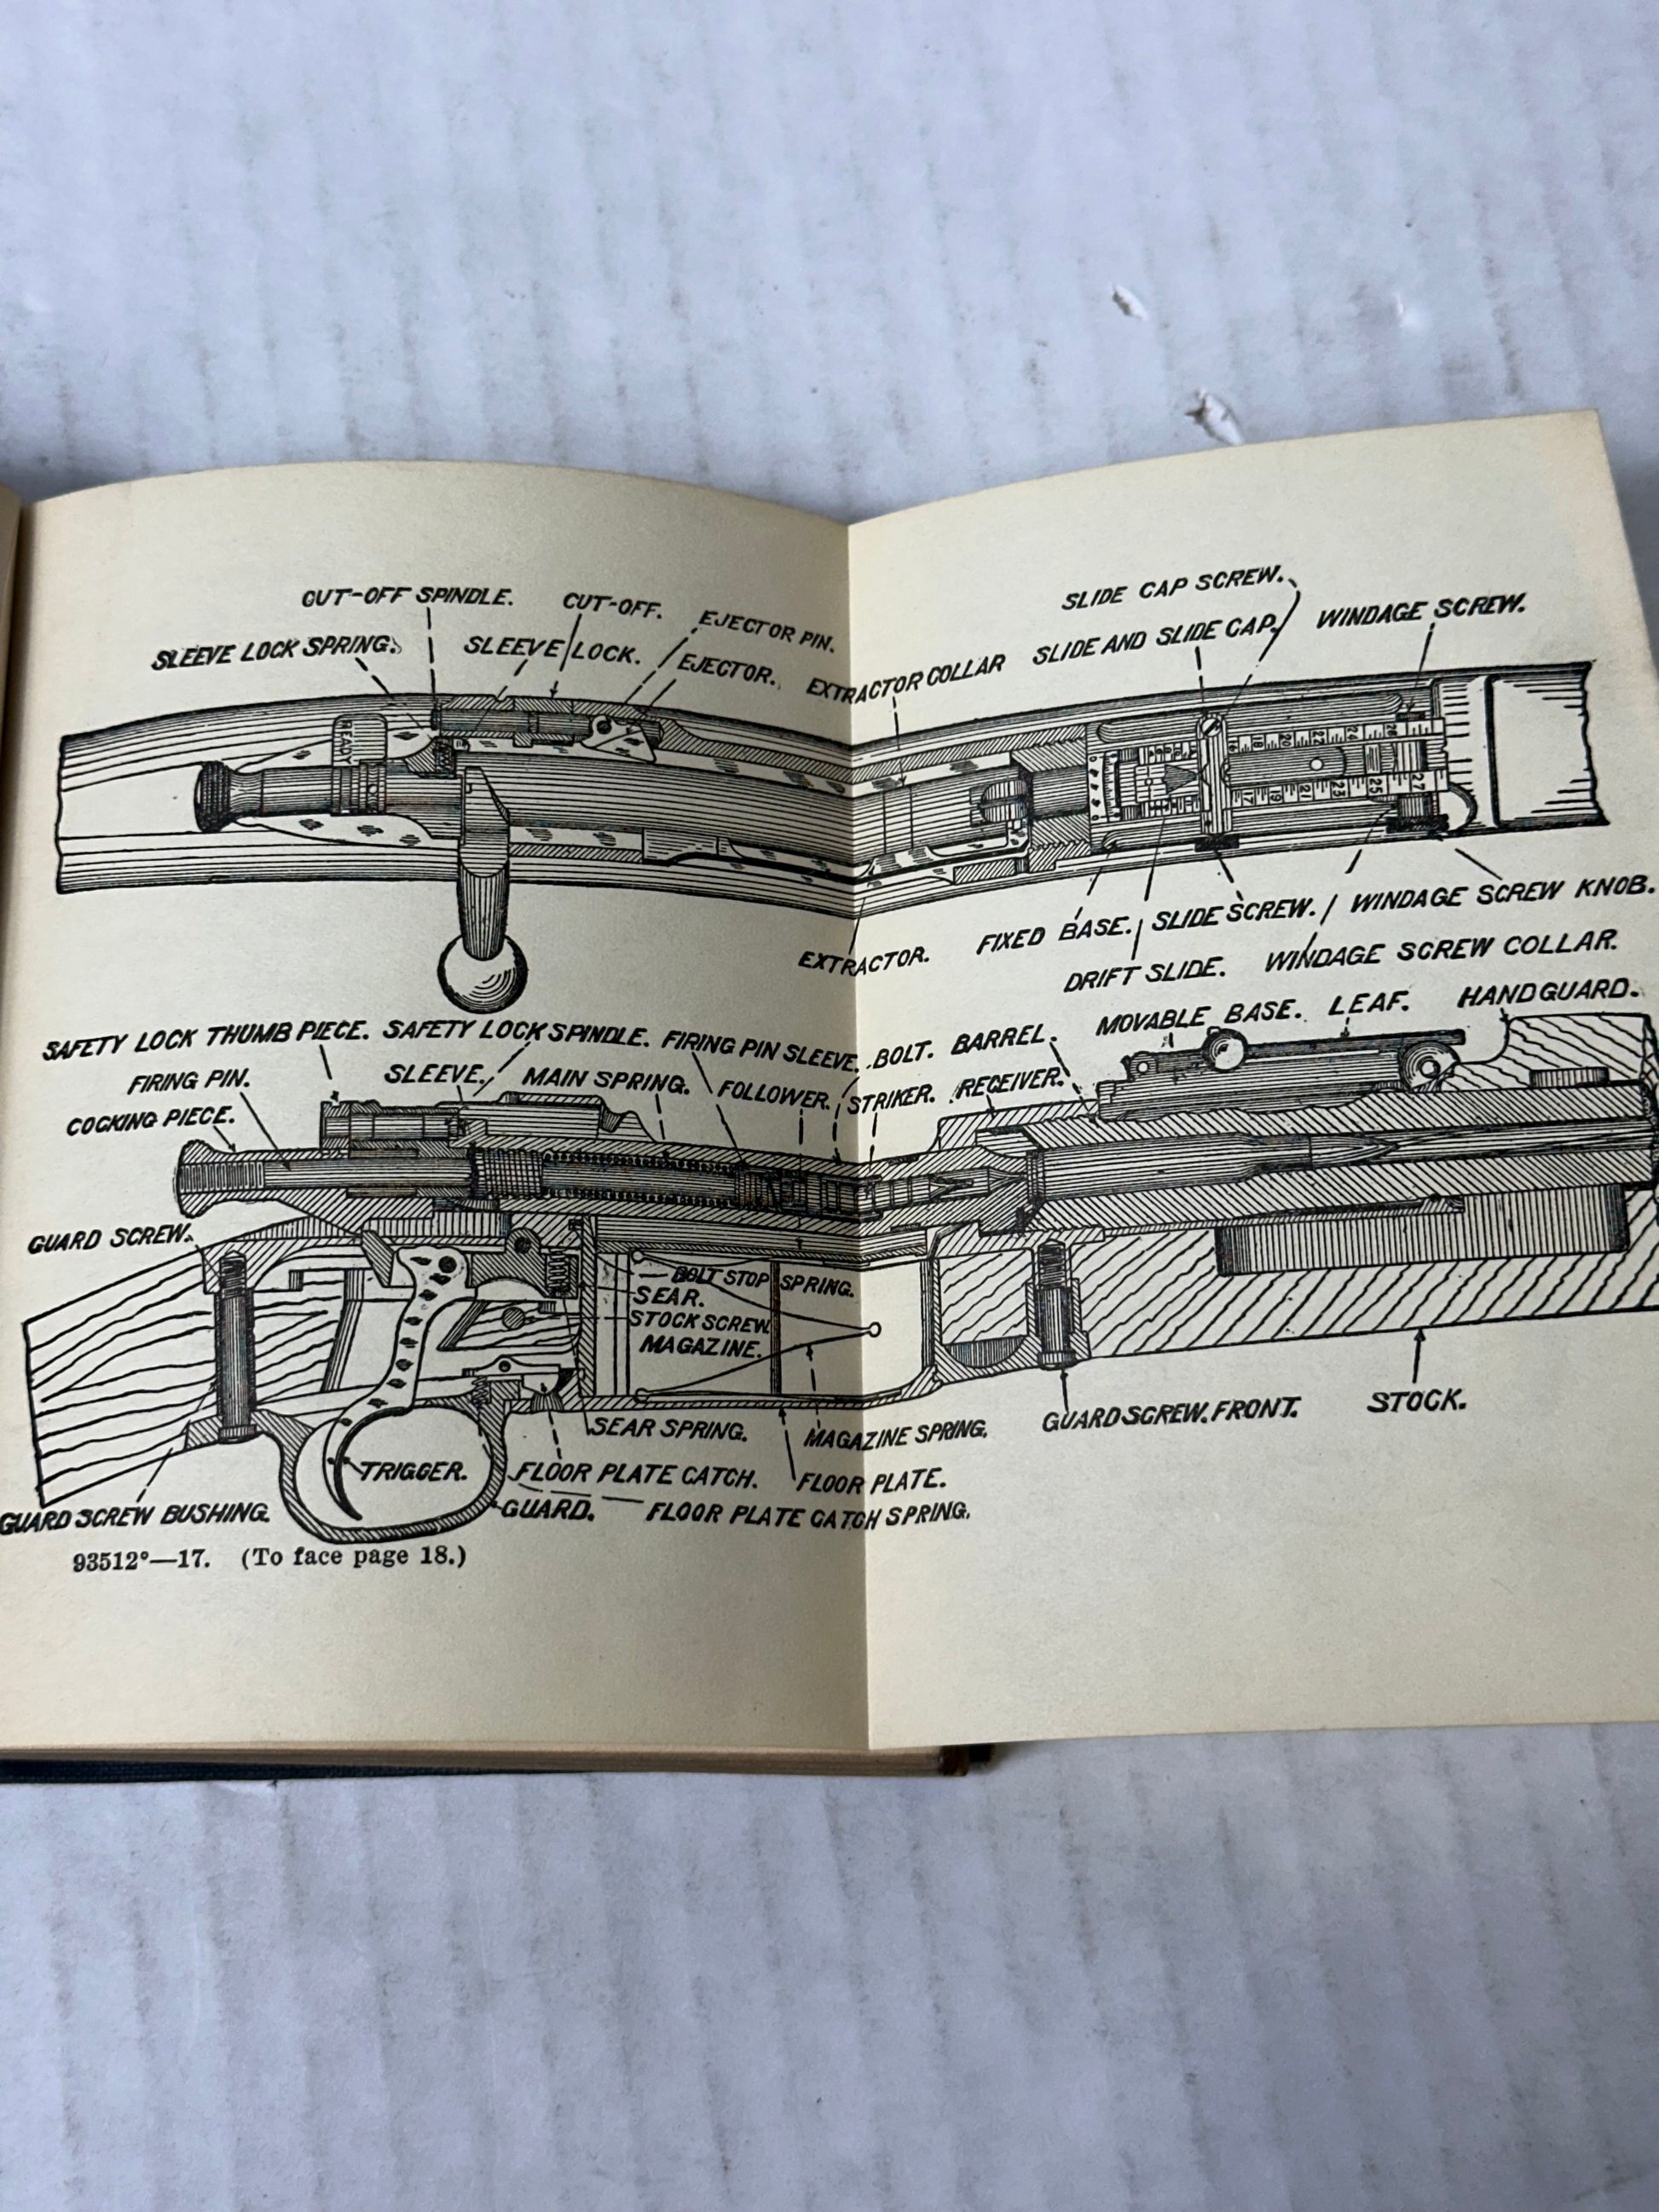 CUT-OFF SPINDLE.
CUT-OFF.
EJECTOR PIN.
SLEEVE LOCK SPRING.
SLEEVE LOCK.
EJECTOR.
EXTRACTOR COLLAR
SLIDE CAP SCREW.
SLIDE AND SLIDE CAP.
WINDAGE SCREW.
READY
EXTRACTOR.
FIXED BASE.
SLIDE SCREW.
WINDAGE SCREW KNOB.
DRIFT SLIDE.
WINDAGE SCREW COLLAR.
SAFETY LOCK THUMB PIECE.
SAFETY LOCK SPINDLE.
FIRING PIN SLEEVE.
BOLT.
BARREL.
MOVABLE BASE.
LEAF.
HAND GUARD.
FIRING PIN.
SLEEVE.
MAIN SPRING.
FOLLOWER.
STRIKER.
RECEIVER.
COCKING PIECE.
GUARD SCREW.
BOLT STOP SPRING.
SEAR.
STOCK SCREW
MAGAZINE.
SEAR SPRING.
MAGAZINE SPRING.
GUARD SCREW. FRONT.
STOCK.
TRIGGER.
FLOOR PLATE CATCH.
FLOOR PLATE.
GUARD SCREW BUSHING.
GUARD.
FLOOR PLATE CATCH SPRING.
93512°—17. (To face page 18.)